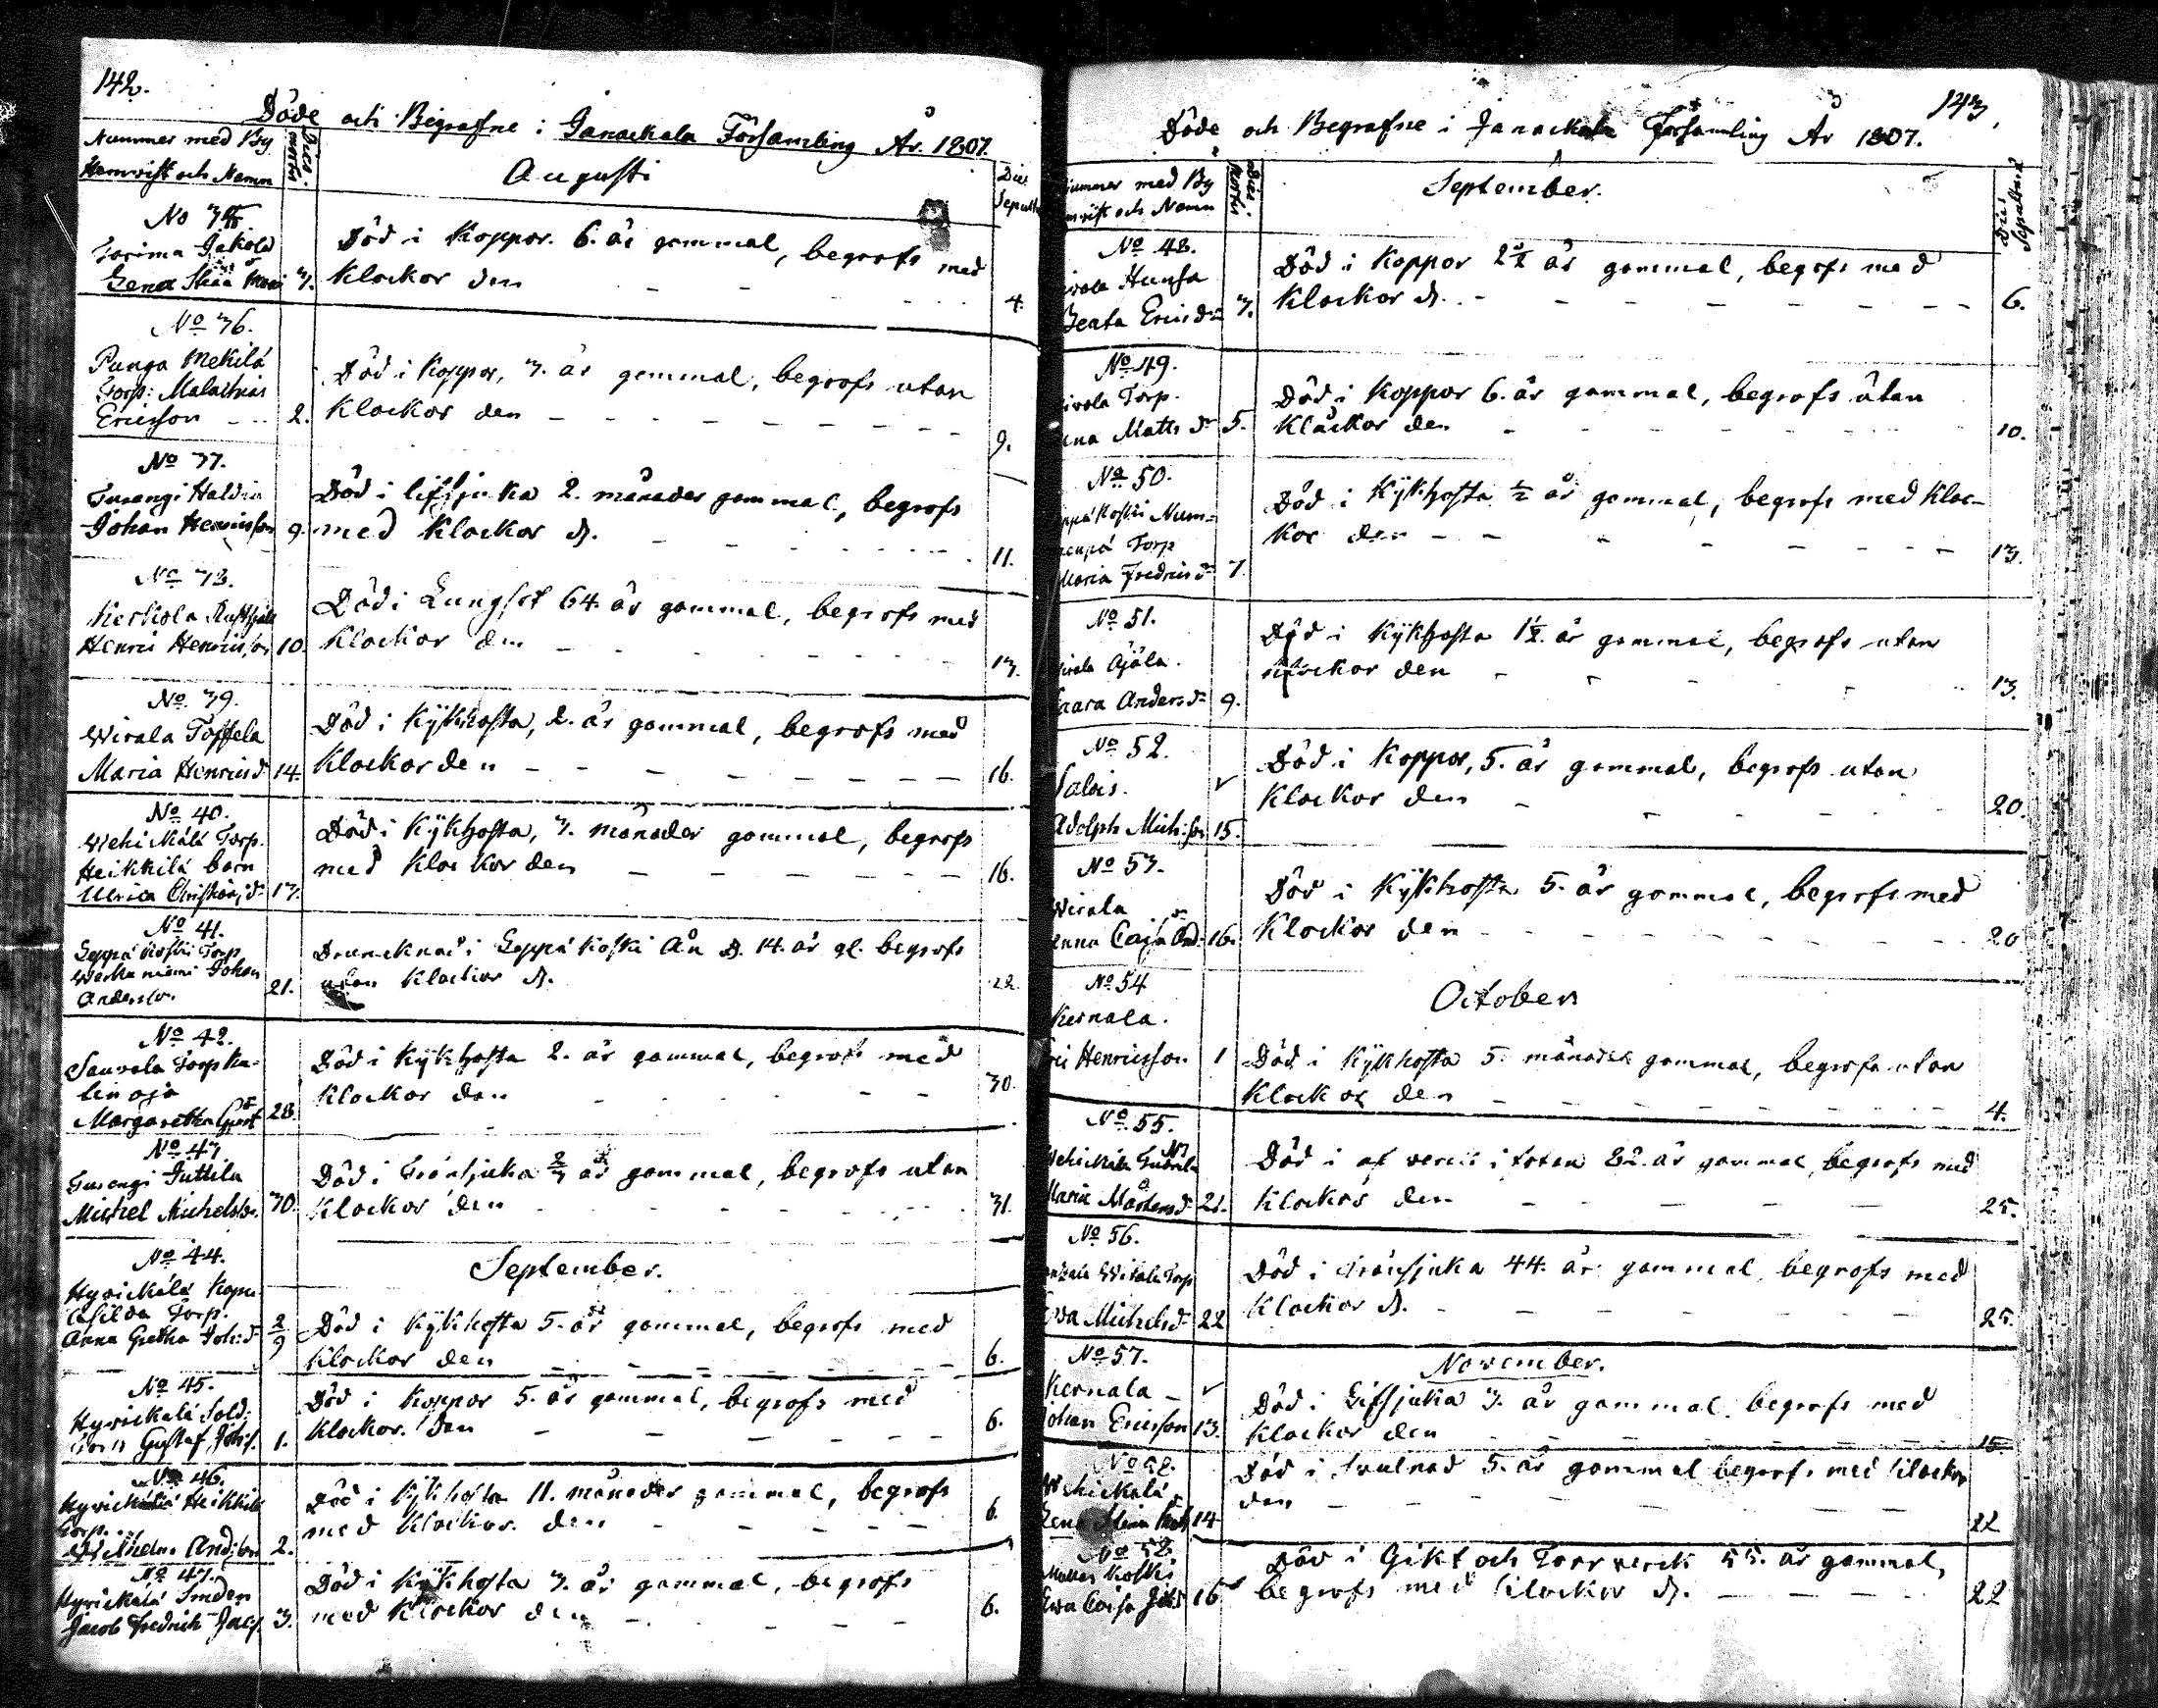 142.
Döde och Begrafne i Janackala Församling År 1807.
Nummer med By
Hemvist och Namn
Dies mortis
Augusti
Dies Sepult
No 35
Torima Jakola
Lena Stina
3.
Död i Koppor. 6. år gammal, begrofs med
Klockor den
4.
No 36.
Punga Mekilä
Torp: Malachias
Ericsson
2.
Död i Koppor, 3. år gammal, begrofs utan
Klockor den
9.
No 37.
Turengi Haldia
Johan Henricsson
9.
Död i lifsjuka 2. månader gammal, begrofs
med Klockor d.
11.
No 38.
Kerkola
Henric Henricsson
10.
Död i Lungsot 64. år gammal, begrofs med
Klockor den
13.
No 39.
Wirala Toffela
Maria Henricsd
14.
Död i Kykhosta, 2. år gammal, begrofs med
Klockor den
16.
No 40.
Wehickälä Torp.
Heikkilä barn
Ulrica Christiansd
13.
Död i Kykhosta, 3. månader gammal, begrofs
med Klockor den
16.
No 41.
Leppäkoski Torp
Werkaniemi Johan
Andersson.
21.
Druncknad i Leppäkoski Ån d. 14. år gl. begrofs
utan Klockor d.
22.
No 42.
Sauvala Torp Ka-
linoja
Margaretha
28.
Död i Kykhosta 2. år gammal, begrofs med
Klockor den
30.
No 43
Turengi Juttila
Michel Michelsson.
30.
Död i Trånsjuka 2/3 år gammal, begrofs utan
Klockor den
31.
No 44.
September.
Hyvickälä
Torp.
Anna Gretha Joh:d
2/9
Död i Kykhosta 5. år gammal, begrofs med
Klockor den
6.
No 45.
Hyvickälä Sold:
Gustaf Joh:s.
1.
Död i Koppor 5. år gammal, begrofs med
Klockor. den
6.
No 46.
Hyvickälä Heikkilä
Torp.
Wilhelm And:son
2.
Död i Kykhosta 11. månader gammal, begrofs
med Klockor. den
6.
No 47.
Hyvickälä Smeden
Jacob Fredrich Jac:s.
3.
Död i Kykhosta 3. år gammal, begrofs
med Klockor den
6.
143.
Döde och Begrafne i Janackala Församling År 1807.
Nummer med By
Hemvist och Namn
Dies mortis
September.
Dies Sepulturae
No 48.
Hunsa
Beata Ericsd
3.
Död i Koppor 2 1/2 år gammal, begrofs med
Klockor d.
6.
No 49.
Torp.
Matts d
5.
Död i Koppor 6. år gammal, begrofs utan
Klockor den
10.
No 50.
Koski Num-
Torp
Maria Fredricsd
7.
Död i Kykhosta 1/2 år gammal, begrofs med Kloc-
kor den
13.
No 51.
Ojala.
Andersd
9.
Död i Kykhosta 1 1/2. år gammal, begrofs utan
klockor den
13.
No 52.
Salois.
Adolph Mich:son
15.
Död i Koppor, 5. år gammal, begrofs utan
Klockor den
20.
No 53.
Wirala
Caja And:
16.
Död i Kykhosta 5. år gammal, begrofs med
Klockor den
20
No 54
October
Kernala.
Henricsson
1
Död i Kykhosta 5. månader gammal, begrofs utan
Klockor den
4.
No 55.
Wehickälä
Maria Mårtensd
21.
Död i af verck i foten 82. år gammal, begrofs med
Klockor den
25.
No 56.
Torp
Michelsd
22
Död i trånsjuka 44. år gammal, begrofs med
Klockor d.
25.
No 57.
November.
Kernala
Johan Ericsson
13.
Död i Lifsjuka 3. år gammal begrofs med
Klockor den
15
No 58.
Wehickälä
Lena
14
Död i Svulnad 5. år gammal begrofs med klockor
den
22
No 58
Koski
Eva Caisa
16
Död i Gikt och Torrverck 55. år gammal,
begrofs med klockor d.
22